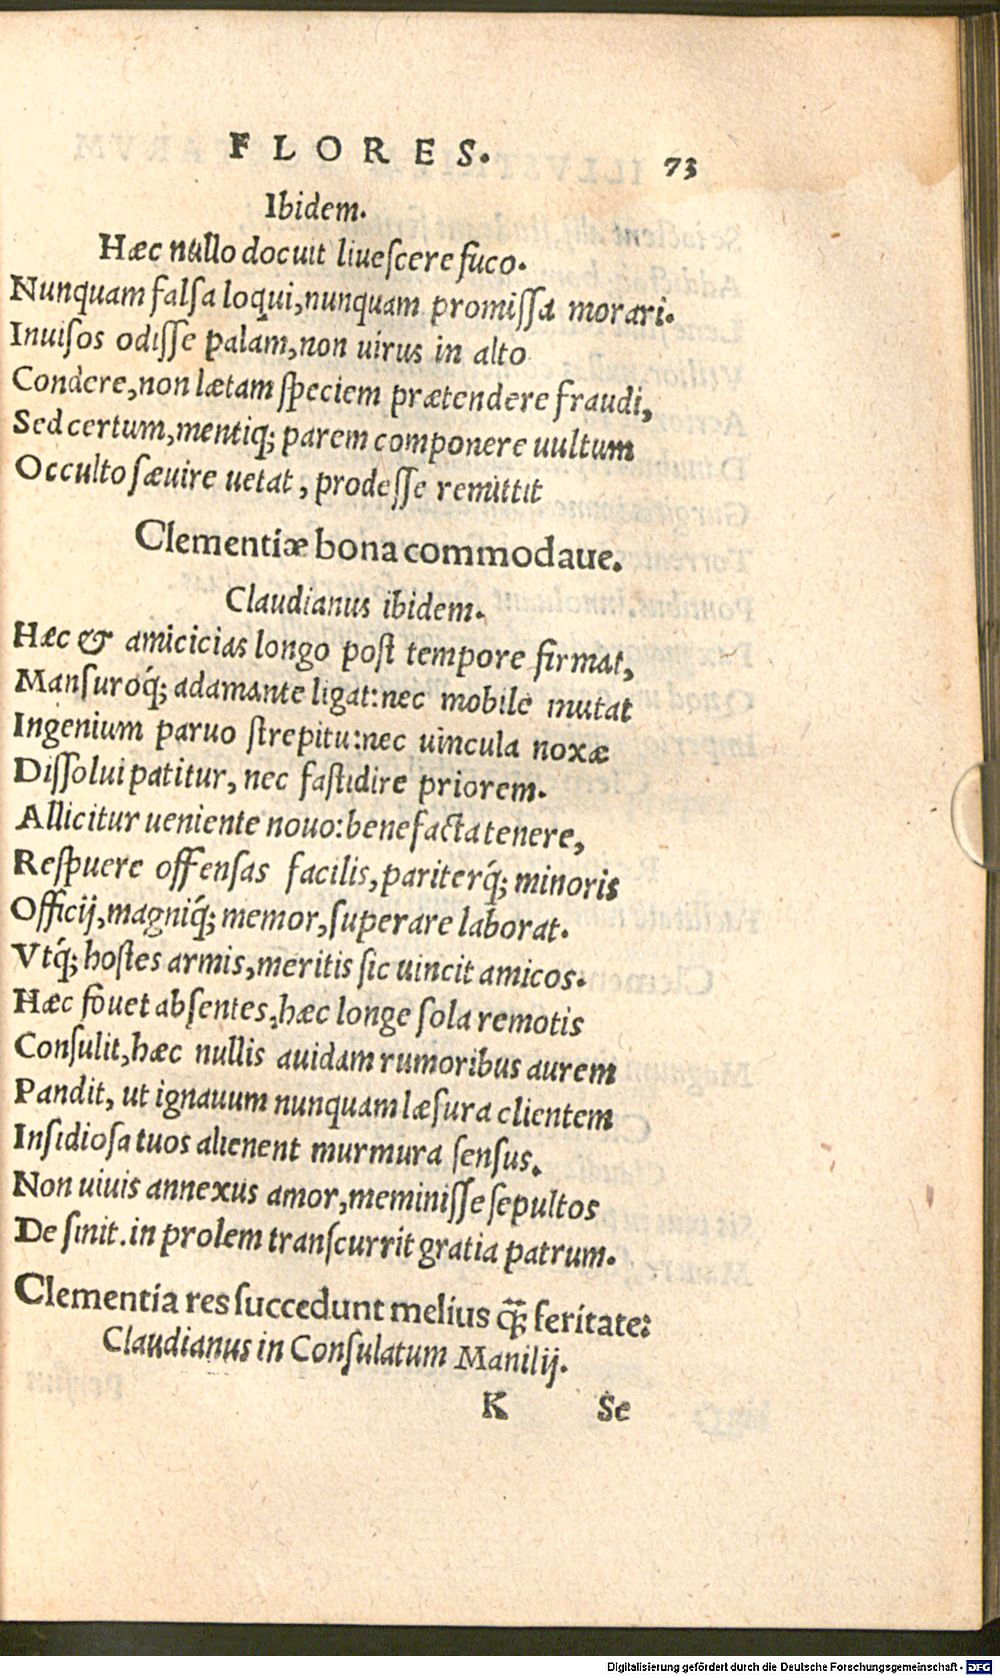 FLORES. 73
Ibidem.
Hæc nullo docuit liuescere fuco.
Nunquam falsa loqui, nunquam promissa morari.
Inuisos odisse palam, non uirus in alto
Condere, non lætam speciem prætendere fraudi,
Sed certum, mentiq; parem componere uultum
Occulto sæuire uetat, prodesse remittit
Clementiæ bona commodaue.
Claudianus ibidem.
Hæc & amicicias longo post tempore firmat,
Mansuroq́; adamante ligat: nec mobile mutat
Ingenium paruo strepitu: nec uincula noxæ
Dissolui patitur, nec fastidire priorem.
Allicitur ueniente nouo: benefacta tenere,
Respuere offensas facilis, pariterq́; minoris
Officij, magniq́; memor, superare laborat.
Vtq́; hostes armis, meritis sic uincit amicos.
Hæc fouet absentes, hæc longe sola remotis
Consulit, hæc nullis auidam rumoribus aurem
Pandit, ut ignauum nunquam læsura clientem
Insidiosa tuos alienent murmura sensus.
Non uiuis annexus amor, meminisse sepultos
Desinit. in prolem transcurrit gratia patrum.
Clementia res succedunt melius q̃ꝫ feritate:
Claudianus in Consulatum Manilij.
K Se
Digitalisierung gefördert durch die Deutsche Forschungsgemeinschaft - DFG